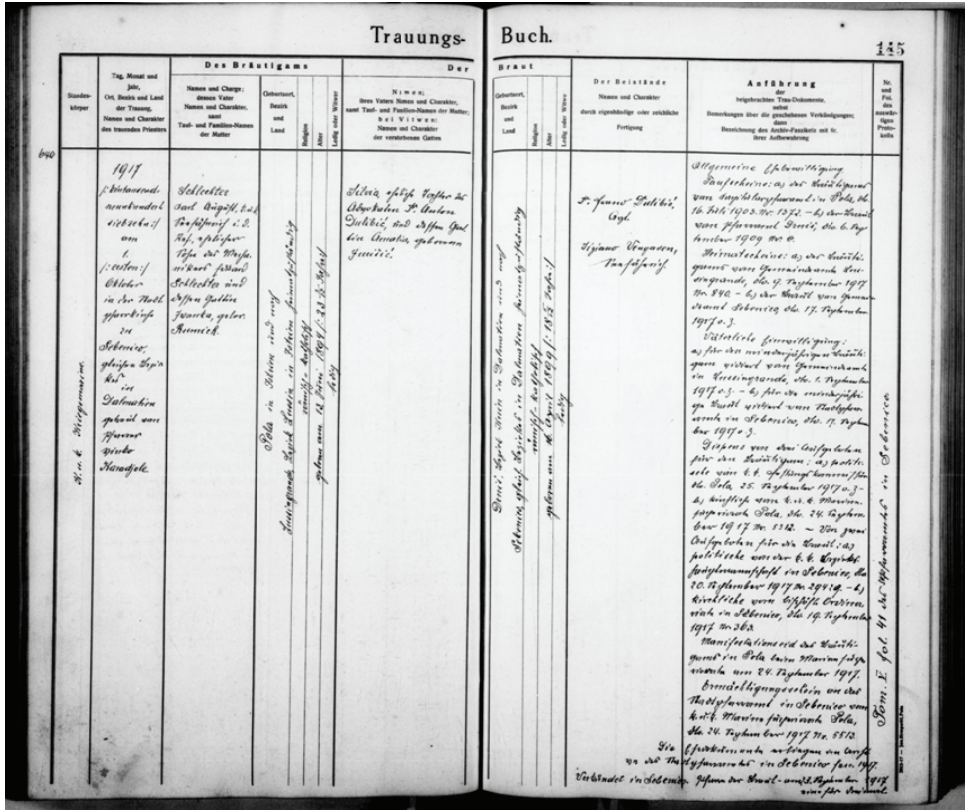 Trauungs- Buch.
145
Standes-
körper
Tag, Monat und
Jahr,
Ort, Bezirk und Land
der Trauung,
Namen und Charakter
des trauenden Priesters
Des Bräutigams
Namen und Charge;
dessen Vater
Namen und Charakter,
samt
Tauf- und Familien-Namen
der Mutter
Geburtsort,
Bezirk
und
Land
Religion
Alter
Ledig oder Witwer
Der Braut
Namen;
ihres Vaters Namen und Charakter,
samt Tauf- und Familien-Namen der Mutter;
bei Witwen:
Namen und Charakter
der verstorbenen Gatten
Geburtsort,
Bezirk
und
Land
Religion
Alter
Ledig oder Witwe
Der Beistände
Namen und Charakter
durch eigenhändige oder zeichliche
Fertigung
Anführung
der
beigebrachten Trau-Dokumente,
nebst
Bemerkungen über die geschehenen Verkündigungen;
dann
Bezeichnung des Archiv-Faszikels mit Nr.
ihrer Aufbewahrung
Nr.
und
Fol.
des
auswär-
tigen
Proto-
kolls
640
K. u. k. Kriegsmarine.
1917
/:eintausend-
neunhundert
siebzehn:/
am
1.
/:ersten:/
Oktober
in der Stadt
pfarrkirche
zu
Sebenico,
gleichen Bezir-
kes
in
Dalmatien
getraut von
Pfarrer
Vinko
Karadjole
Schlechter
Carl August, k.u.k.
Seefähnrich i. d.
Res., ehelicher
Sohn des Mecha-
nikers
Schlechter und
dessen Gattin
Ivanka, gebor.
Pola in Istrien und nach
Lussingrande, Bezirk Lussin in Istrien heimatszuständig
römisch-katholisch
geboren am 12 Juni 1894
ledig
Silvia, eheliche Tochter des
Advokaten Dr. Anton
Dulibić, und dessen Gat-
tin Amalia, geborenen
Dernis, Bezirk Knin in Dalmatien und nach
Sebenico, gleich. Bezirkes in Dalmatien heimatszuständig
römisch-katholisch
geboren am April 1899 /: 18 1/2 Jahre:/
ledig
Dulibić,
Tiziano
Seefähnrich.
Allgemeine Ehebewilligung
Taufscheine: a) des Bräutigams
in Pola, dto.
16. Juli 1903. Nr. 1372. – b) der Braut
vom Pfarramt Dernis, dto. 6. Sep
tember 1909 Nr.
Heimatscheine: a) des Bräuti-
gams vom Gemeindeamte Lus-
singrande, dto. 9. September 1917
Nr. 840. – b) der Braut vom Gemein-
deamt Sebenico, dto. 17. September
1917 o. Z.
Väterliche Einwilligung:
a) für den minderjährigen Bräuti-
gam vidiert vom Gemeindeamte
in Lussingrande, dto. 1. September
1917 o. Z. – b) für die minderjähri-
ge Braut vidiert vom Stadtpfarr-
amte in Sebenico, dto. 17. Septem-
ber 1917 o. Z.
Dispens von den Aufgeboten
für den Bräutigam: a) politi-
sche vom k. k. Festungskommissär
dto. Pola, 25. September 1917 o. Z. –
b) kirchlich vom k. u. k. Marine-
superiorate Pola, dto. 24. Septem-
ber 1917 Nr. 5212. – Von zwei
Aufgeboten für die Braut: a)
politische von der k. k. Bezirks-
hauptmannschaft in Sebenico, dto
20. September 1917 Nr. – b)
kirchliche vom bischöfl. Ordina-
riate in Sebenico, dto. 19. September
1917 Nr. 363.
Manifestationseid des Bräuti-
gams in Pola beim Marinesupe-
riorate am 24. September 1917.
Ermächtigungsschein an das
Stadtpfarramt in Sebenico vom
k. u. k. Marinesuperiorate Pola,
dto. 24. September 1917 No. 5513
Die Ehedokumente erliegen im Archi-
ve des Stadtpfarramtes in Sebenico 1917.
Verkündet in Sebenico der Braut am September 1917
eins für dreimal
Tom. X fol. 41 des Pfarramtes in Sebenico